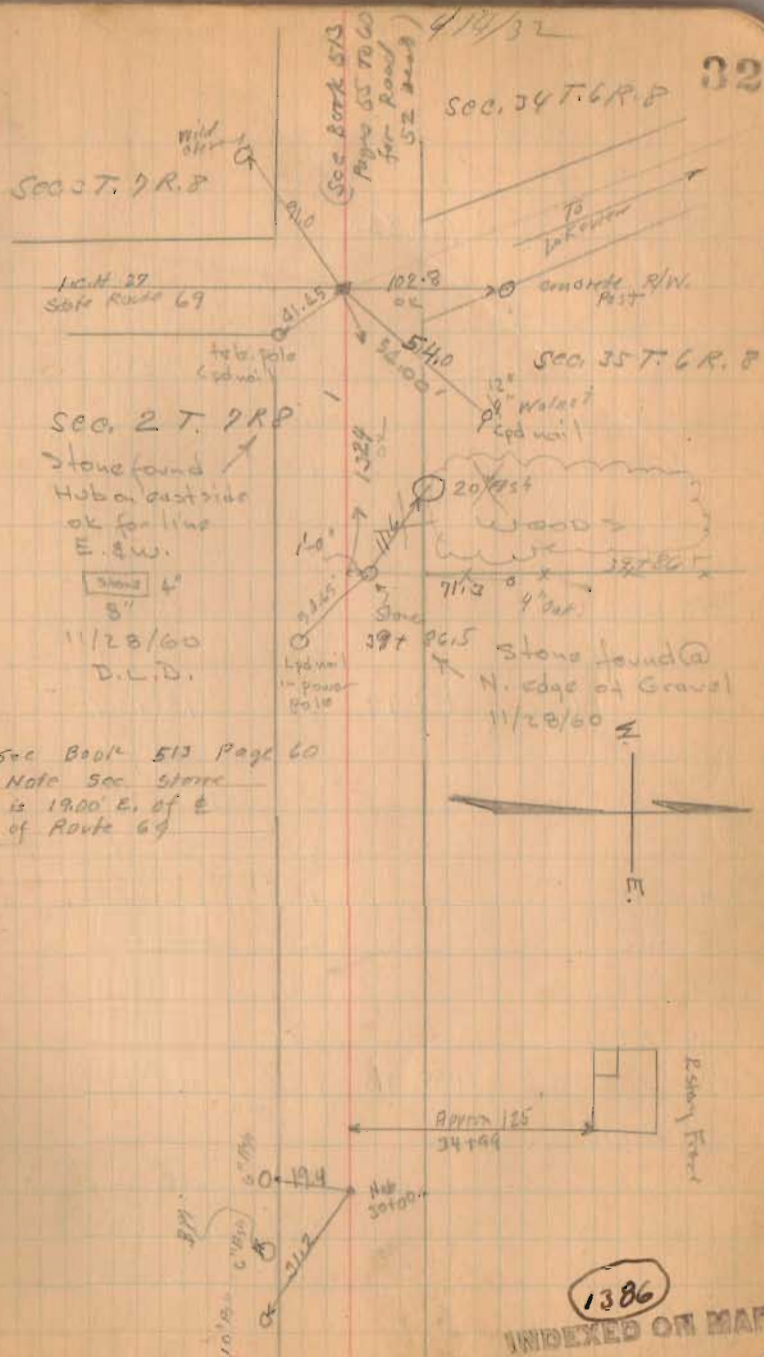 4/14/32
32
(See Book 513
Pages 55 TO 60
for Road
52 )
Sec. 34 T. 6 R. 8
Wild
Sec 3 T. 7 R. 8
91.0
To
Lakeview
I.C.H 27
State Route 69
102.8
ok
Concrete R/W.
Post
41.45
tele. pole
Spd nail
54.00'
54.0
Sec. 35 T. 6 R. 8
12"
9" Walnut
Spd nail
Sec. 2 T. 7 R 8
Stone found
Hub on east side
ok for line
E. & W.
Stone 4"
8"
11/28/60
D.L.D.
1324
ok
20" Ash
WOODS
11.6
1'-0"
Stone
39+86.5
71.3
4" Oak
39+86.5
Spd nail
in power
Pole
Stone found @
N. edge of Gravel
11/28/60
See Book 513 Page 60
Note Sec Stone
is 19.00' E. of ℄
of Route 69
W.
E.
Approx 125
34+99
2 story Frame
6" Ash
19.4
Hub
30+00
B.M.
6" Ash
31.2
10"
1386
INDEXED ON MAP